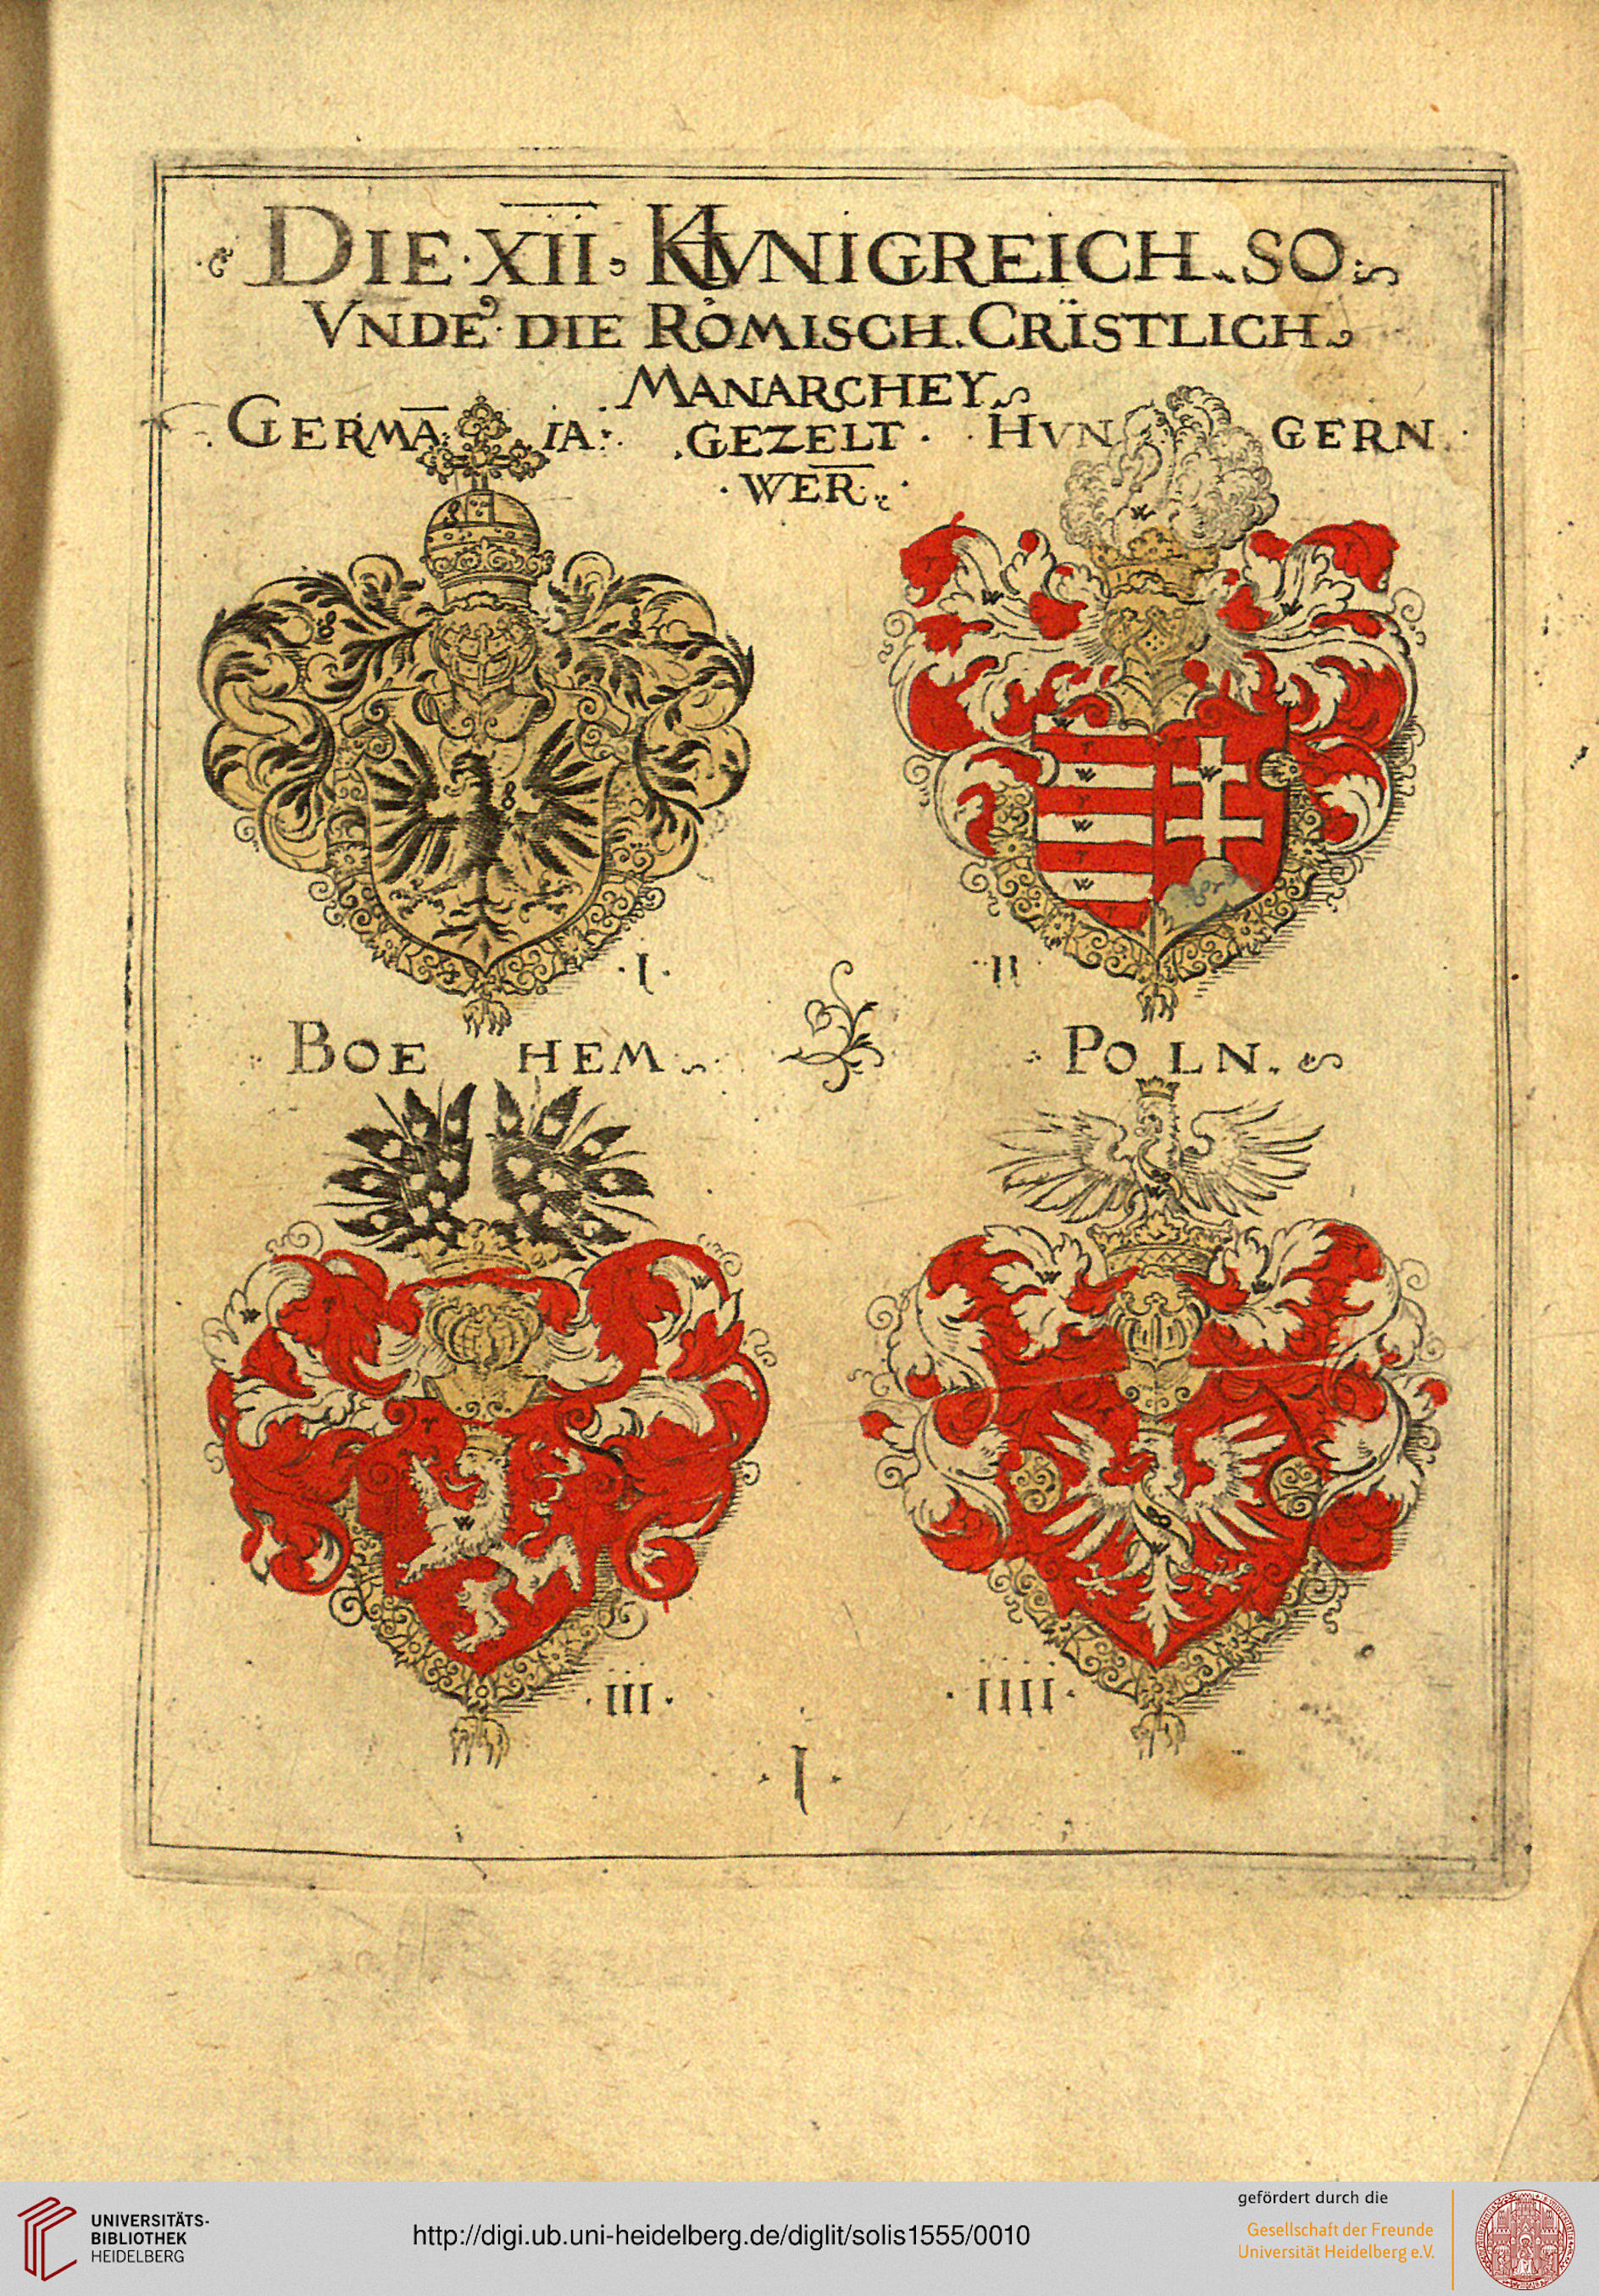 DIE·XII· KHVNIGREICH. SO
VNDE' DIE RÖMISCH. CRISTLICH
MANARCHEY
GERMĀ IA: .GEZELT · HVN GERN ·
· WER̄ ·
W
8
8 8
W W
W
r
8
W W
r
W
r
W
r
8
·I· II
BOE HEM PO LN.
8
W
W W
W W
r
r
W
8
W
·III· ·IIII·
·I·
UNIVERSITÄTS-
BIBLIOTHEK
HEIDELBERG
http://digi.ub.uni-heidelberg.de/diglit/solis1555/0010
gefördert durch die
Gesellschaft der Freunde
Universität Heidelberg e.V.